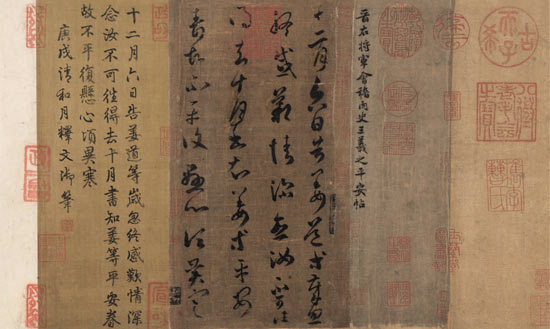 古稀天子
八徵耄耋之寶
晉右將軍會稽內史王羲之平安帖
十二月六日告姜道等歲忽
終感歎情深念汝不可往
得去十月書知姜等平安
壽故不平復懸心頃異寒
十二月六日告姜道等歲忽終感歎情深
念汝不可往得去十月書知姜等平安壽
故不平復懸心頃異寒
庚戌清和月釋文御筆